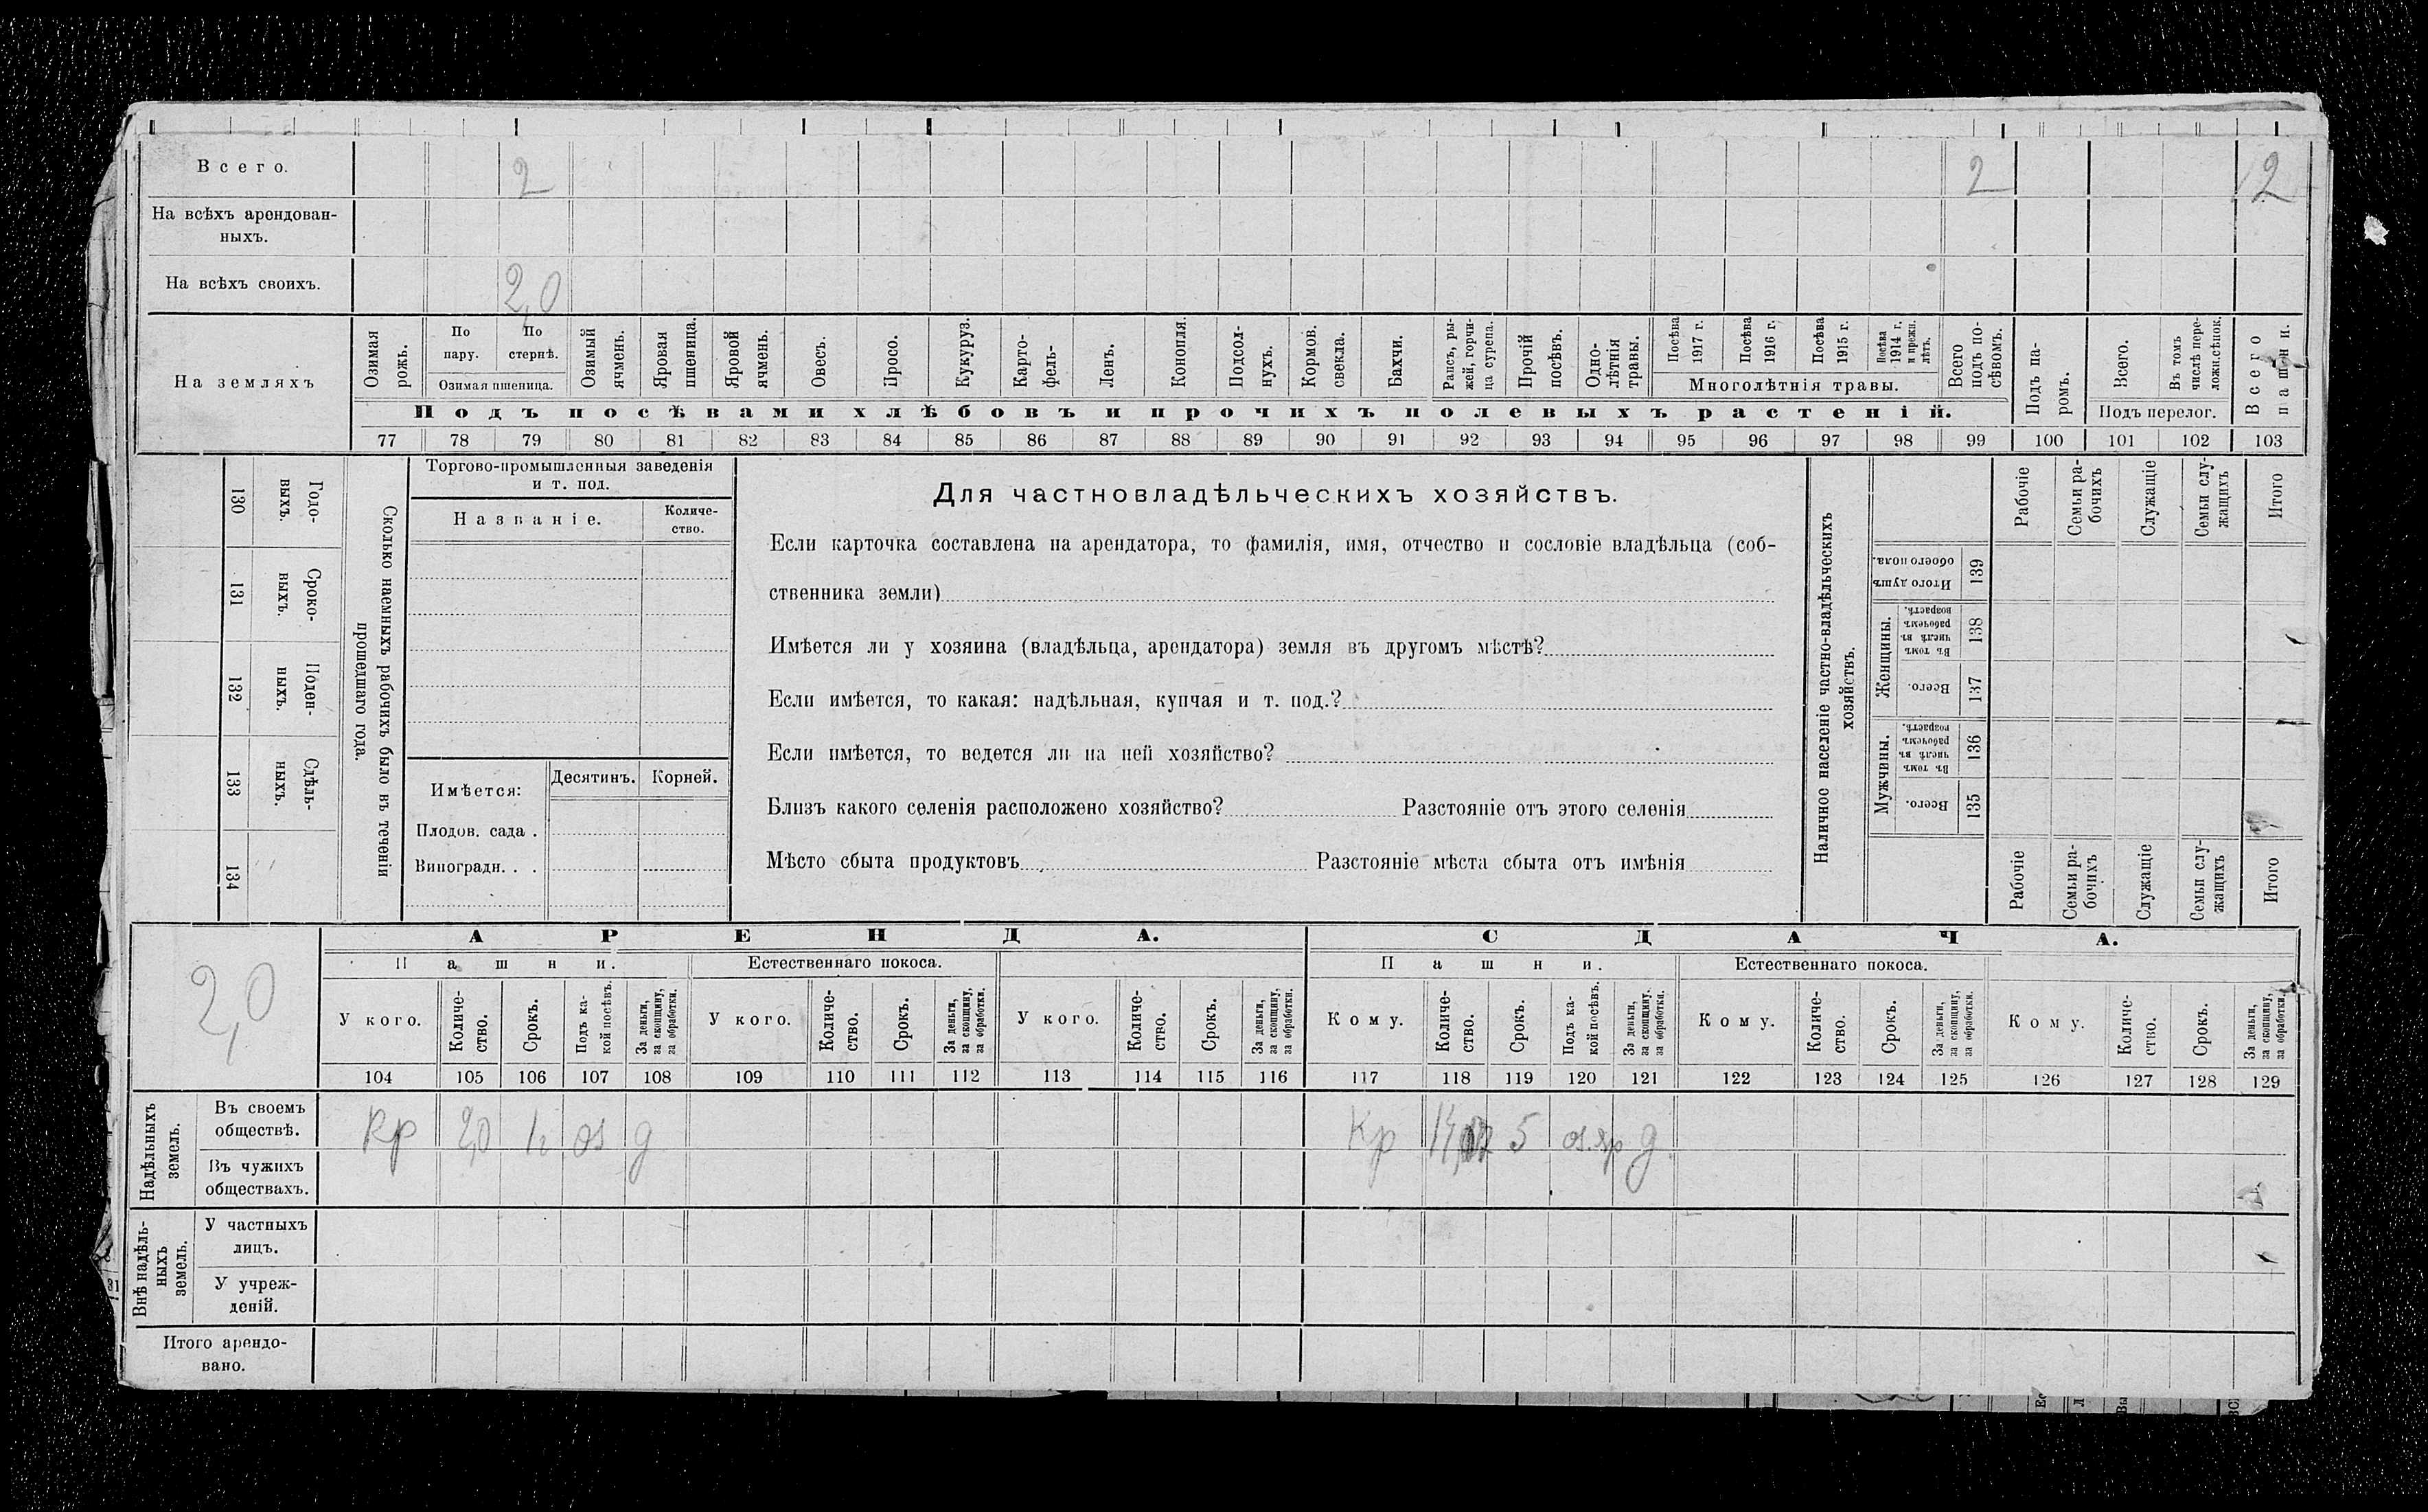 Всего. 2 2 2
На всѣхъ арендован-
ныхъ.
На всѣхъ своихъ. 2,0
На земляхъ
Озимая рожь.
По пару.
По стернѣ.
Озимая пшеница.
Озимый ячмень.
Яровая пшеница.
Яровой ячмень.
Овесъ.
Просо.
Кукуруз.
Карто-
фель-
Ленъ.
Конопля.
Подсол-
нухъ.
Кормов. свекла.
Бахчи.
Рапсъ, ры-
жей, горчи-
ца сурепа.
Прочій посѣвъ.
Одно-
лѣтнія
травы.
Посѣва 1917 г.
Посѣва 1916 г.
Посѣва 1915 г.
Посѣва 1914 г. и прежн. лѣтъ.
Многолѣтнія травы.
Всего подъ по-
сѣвомъ.
Подъ посѣвами хлѣбовъ и прочихъ полевыхъ растеній.
Подъ па-
ромъ.
Всего.
Въ томъ числѣ пере-
ложн.сѣнок.
Подъ перелог.
Всего пашни.
77 78 79 80 81 82 83 84 85 86 87 88 89 90 91 92 93 94 95 96 97 98 99 100 101 102 103
130 Годо-
выхъ.
131 Сроко-
выхъ.
132 Поден-
ныхъ.
133 Сдѣль-
ныхъ.
134
Сколько наемныхъ рабочихъ было въ теченіи
прошедшаго года.
Торгово-промышленныя заведенія
и т. под.
Названіе.
Количе-
ство.
Имѣется: Десятинъ. Корней.
Плодов. сада .
Виноградн. . .
Для частновладѣльческихъ хозяйствъ.
Если карточка составлена на арендатора, то фамилія, имя, отчество и сословіе владѣльца (соб-
ственника земли)
Имѣется ли у хозяина (владѣльца, арендатора) земля въ другомъ мѣстѣ?
Если имѣется, то какая: надѣльная, купчая и т. под.?
Если имѣется, то ведется ли на ней хозяйство?
Близъ какого селенія расположено хозяйство? Разстояніе отъ этого селенія
Мѣсто сбыта продуктовъ Разстояніе мѣста сбыта отъ имѣнія
Наличное населеніе частно-владѣльческихъ
хозяйствъ.
Рабочіе
Семьи ра-
бочихъ
Служащіе
Семьи слу-
жащихъ
Итого
Итого душъ обоего пола. 139
Женщины.
Въ томъ числѣ въ рабочемъ возрастѣ. 138
Всего. 137
Мужчины.
Въ томъ числѣ въ рабочемъ возрастѣ. 136
Всего. 135
Рабочіе
Семьи ра-
бочихъ
Служащіе
Семьи слу-
жащихъ
Итого
2,0
АРЕНДА. СДАЧА.
Пашни. Естественнаго покоса. Пашни. Естественнаго покоса.
У кого.
Количе-
ство.
Срокъ.
Подъ ка-
кой посѣвъ.
За деньги,
за скопщину,
за обработки.
У кого.
Количе-
ство.
Срокъ.
За деньги,
за скопщину,
за обработки.
У кого.
Количе-
ство.
Срокъ.
За деньги,
за скопщину,
за обработки.
Кому.
Количе-
ство.
Срокъ.
Подъ ка-
кой посѣвъ.
За деньги,
за скопщину.
за обработки.
Кому.
Количе-
ство.
Срокъ.
За деньги,
за скопщину,
за обработки.
Кому.
Количе-
ство.
Срокъ.
За деньги,
за скопщину,
за обработки.
104 105 106 107 108 109 110 111 112 113 114 115 116 117 118 119 120 121 122 123 124 125 126 127 128 129
Надѣльныхъ
земель.
Въ своемъ
обществѣ.
Кр 2,0 оз д Кр 5 оз.яр д
Въ чужихъ
обществахъ.
Внѣ надѣль-
ныхъ
земель.
У частныхъ
лицъ.
У учреж-
деній.
Итого арендо-
вано.